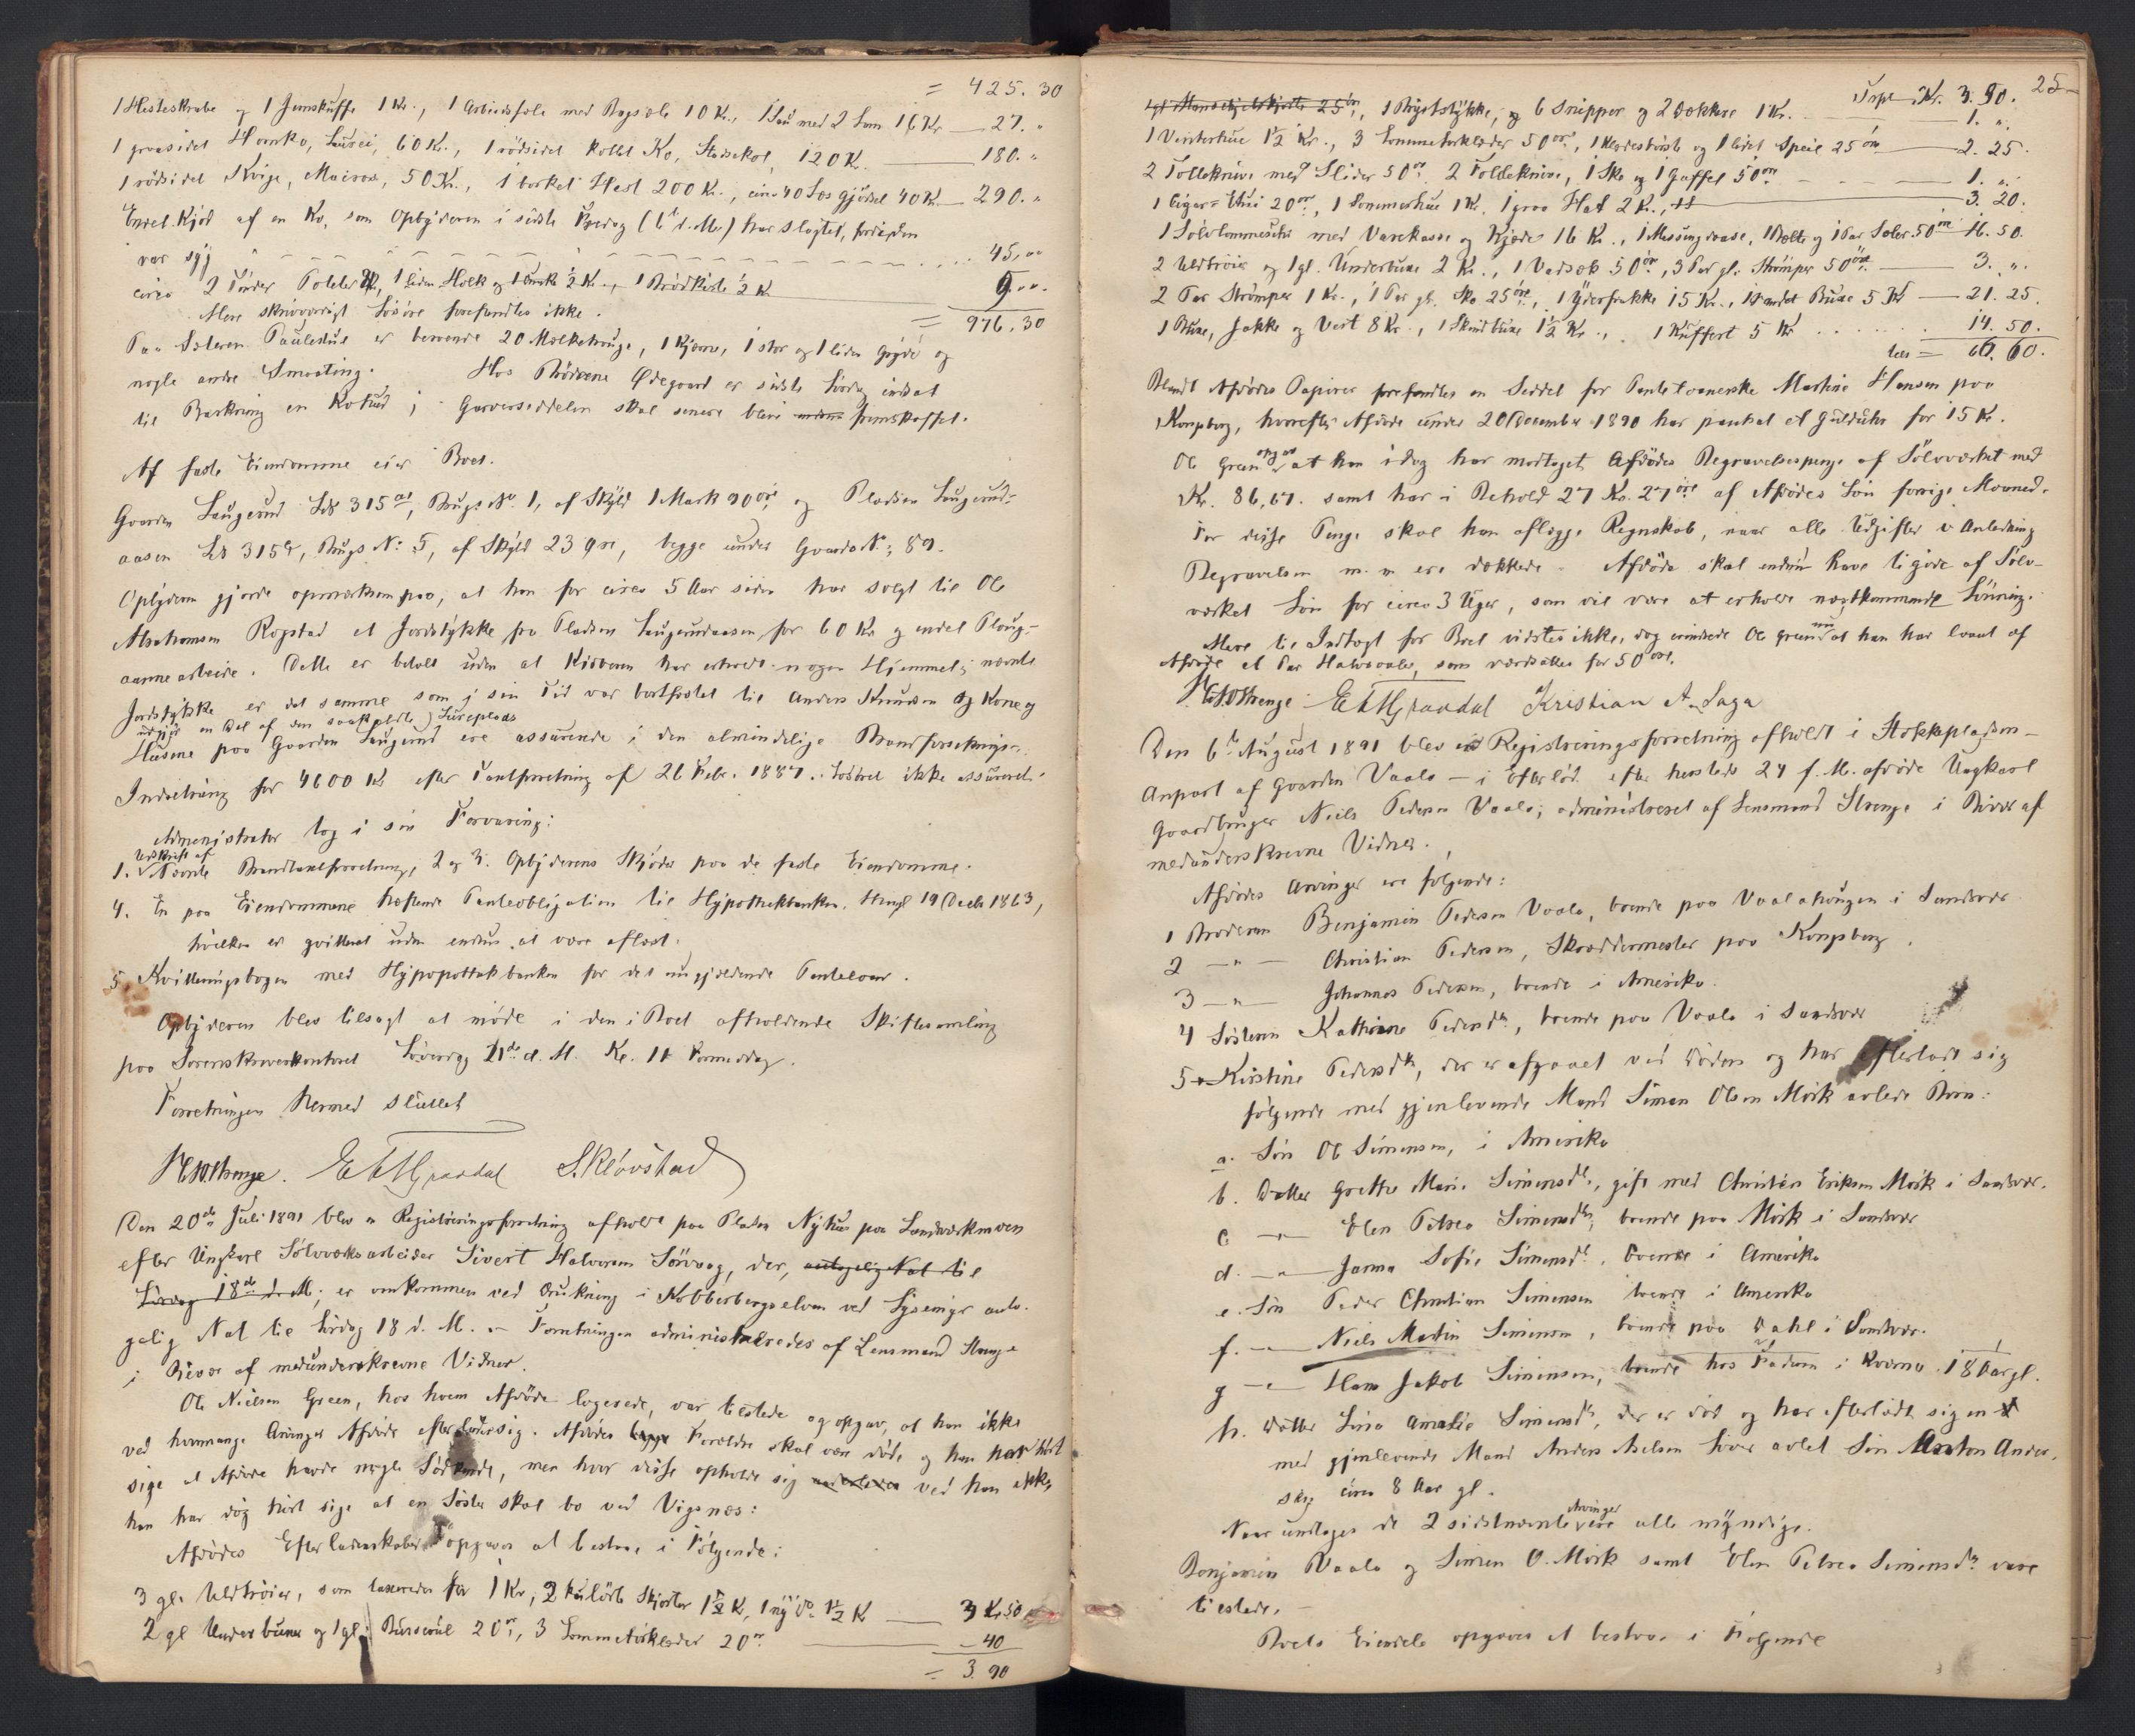 = 425. 30
1 Hesteskrabe og 1 Jernskuffe 1 Kr., 1 Arbeidssele med Bogsæle 10 Kr., 1 Sau med 2 Lam 16 Kr — 27. "
1 graasidet Hornko, 60 Kr., 1 rödsidet kollet Ko, 120 Kr. — 180. "
1 rödsidet Kvige, Mairos, 50 Kr., 1 borket Hest 200 Kr., circa 40 Læs Gjödsel 40 Kr. — 290. "
Endel Kjöd af en Ko, som Opbyderen i sidste Fredag (d. M.) har slagtet, fordi den
var syg — 45,00
circa 2 Tönder Poteter, 1 liden Holk og 1 ½ Kr., 1 Brödkiste ½ Kr. 9. "
Mere skrivværdigt Lösöre forefandtes ikke. = 976. 30
Paa Sæteren Paulsdus er beroende 20 Mælketrouge, 1 Kjærne, 1 stor og 1 liden Gryde og
nogle andre Smaating. Hos Brödrene Ødegaard er sidste Lördag indsat
til Barkning en Kohud; Garverseddelen skal senere blive fremskaffet.
Af faste Eiendomme eier Boet.
Gaarden Laugerud Lb 315 a, Brugs No. 1, af Skyld 1 Mark 90 öre og Pladsen Laugerud-
aasen Lb 315, Brugs No. 5, af Skyld 23 Öre, begge under Gaards No. 89.
Opbyderen gjorde opmærksom paa, at han for circa 5 Aar siden har solgt til Ole
Abrahamsen Rogstad et Jordstykke fra Pladsen Laugerudaasen, for 60 Kr. og endel Ploug-
aanne arbeide. Dette er betalt uden at Kjöberen har erholdt nogen Hjemmel; nævnte
Jordstykke er det samme som i sin Tid var bortfæstet til Anders Knudsen og Kone og
udgjör en Del af den saakaldte Lureplads
Husene paa Gaarden Laugerud ere assurerede i den almindelige Brandforsikrings-
Indretning for 4600 Kr. efter Taxtforretning af 26 Febr. 1887. Lösöret ikke assureret.
Administrator tog i sin Forvaring:
Udskrift af
1. Nævnte Brandtaxtforretning, 2 og 3. Opbyderens Skjöder paa de faste Eiendomme.
4. En paa Eiendommene hæftende Panteobligation til Hypothekbanken, thingl 19 Decbr 1863,
hvilken er qvitteret uden endnu at være aflæst.
5. Kvitteringsbogen med Hypopottekbanken for det nugjældende Pantelaan.
Opbyderen blev tilsagt at möde i den i Boet afholdende Skiftesamling
paa Sorenskriverkontoret Löverdag d. M. Kl. 11 Formiddag.
Forretningen hermed sluttet
H. O. Strenge. E. A. Graadal S. Klövstad
Den 20de Juli 1891 blev en Registreringsforretning afholdt paa Pladsen Nyhus paa Landværkmoen
efter Ungkarl Sölvværksarbeider Sivert Halvorsen Sörvaag, der, antagelig Nat til
Lördag 18de d. M. er omkommen ved Drukning i Kobberbergselven ved Lysemyr anta-
gelig Nat til Lördag 18 d. M. — Forretningen administreredes af Lensmand Strenge
i Bivær af medunderskrevne Vidner.
Ole Nielsen Green, hos hvem Afdöde logerede, var tilstede og opgav, at han ikke
ved hvormange Arvinger Afdöde efterlod sig. Afdödes begge Forældre skal være döde, og han har hört
sige at Afdöde havde nogle Södskende, men hvor disse opholde sig ved han ikke,
han har dog hört sige at en Söster skal bo ved Vigsnæs:
Afdödes Efterladenskaber opgaves at bestaa i Følgende:
3 gl. Uldtröier, som taxeredes for 1 Kr, 2 kulörte Skjorter 1½ Kr, 1 ny do. 1½ Kr — 3 Kr 50
2 gl Underbuxer og 1 gl. 20 ör, 3 Lommetörklæder 20 ör — 40
= 3. 90
25
Trspt Kr. 3. 90.
1 gl Mandskjolskjorte 25 ör, 1 Brystsykke, og 6 Snipper og 2 Dekker 1 Kr. — 1. "
1 Vinterhue 1½ Kr., 3 Lommetörklæder 50 ör, 1 Klædesbörste og 1 lidet Speil 25 öre — 2. 25.
2 Tolleknive med Slider 50 ör 2 Foldeknive, 1 Ske og 1 Gaffel 50 öre — 1. "
1 Cigar-Etui 20 ör, 1 Sommerhue 1 Kr. 1 graa Hat 2 Kr., — 3. 20.
1 Sölvlommeuhr med Varekasse og Kjæde 16 Kr., 1 Messingdaase, 1 Belte og 1 Par Seler 50 öre — 16. 50.
2 Uldtröier og 1 gl. Underbuxe 2 Kr., 1 Vadsæk 50 öre, 3 Par gl. Strömper 50 öre — 3. ".
2 Par Strömper 1 Kr., 1 Par gl. Sko 25 öre, 1 Yderfrakke 15 Kr., Buxe 5 Kr — 21. 25.
1 Buxe, Jakke og Vest 8 Kr., 1 Skindbuxe 1½ Kr., 1 Kuffert 5 Kr 14. 50.
= 66. 60.
Blandt Afdödes Papirer forefandtes en Seddel for Pantelaanerske Martine Hansen paa
Kongsberg, hvorefter Afdöde under 20 December 1890 har pantsat et Gulduhr for 15 Kr.
Ole Green opgav at han idag har modtaget Afdödes Begravelsespenge af Sölvværket med
Kr. 86,67. samt har i Behold 27 Kr. 27 öre af Afdödes Lön forrige Maaned.
For disse Penge skal han aflægge Regnskab, naar alle Udgifter i Anledning
Begravelsen m. m. ere dækkede. Afdöde skal endnu have tilgode af Sölv-
værket Lön for circa 3 Uger, som vil være at erholde næstkommende Lönning.
Mere til Indtægt for Boet vidstes ikke, dog erindrede Ole Green nu at han har laant af
Afdöde et Par Halvsaaler, som værdsættes for 50 öre.
H. O. Strenge E. A. Graadal Kristian A. Saga
Den 6te August 1891 blev Registreringsforretning afholdt i Stokkepladsen —
Anpart af Gaarden Vaala — i Efterlod. efter hersteds 24 f. M. afdöde Ungkarl
Gaardbruger Niels Pedersen Vaala; administreret af Lensmand Strenge i Bivær af
medunderskrevne Vidner.
Afdödes Arvinger ere følgende:
1 Broderen Benjamin Pedersen Vaala, boende paa Vaalahaugen i Sandsvær
2 —"— Christian Pedersen, Skræddermester paa Kongsberg.
3 —"— Johannes Pedersen, boende i Amerika.
4 Sösteren Kathrine Pedersdtr, boende paa Vaala i Sandsvær
5 —"— Kirstine Pedersdtr, der er afgaaet ved Döden og har efterladt sig
følgende med gjenlevende Mand Simen Olsen Mörk avlede Börn:
a. Sön Ole Simensen, i Amerika
b. Datter Grethe Marie Simensdtr., gift med Christen Eriksen Mörk i Sandsvær.
c —"— Elen Petrea Simensdtr, boende paa Mörk i Sandsvær
d. —"— Janna Sofie Simensdtr. boende i Amerika
e. Sön Peder Christian Simensen boende i Amerika
f. —"— Niels Martin Simensen, boende paa Dahl i Sandsvær.
g —"— Hans Jakob Simensen, boende hos Faderen i Kværne. 18 Aar gl.
h. Datter Lina Amalie Simensdtr, der er död og har efterladt sig en
med gjenlevende Mand Anders Axelsen avlet Sön Anton Anders-
sen, circa 8 Aar gl.
Naar undtages de 2 sidstnævnte Arvinger ere alle myndige.
Benjamin Vaala og Simen O. Mörk samt Elen Petrea Simensdtr vare
tilstede. —
Boets Eiendele opgaves at bestaa i Følgende